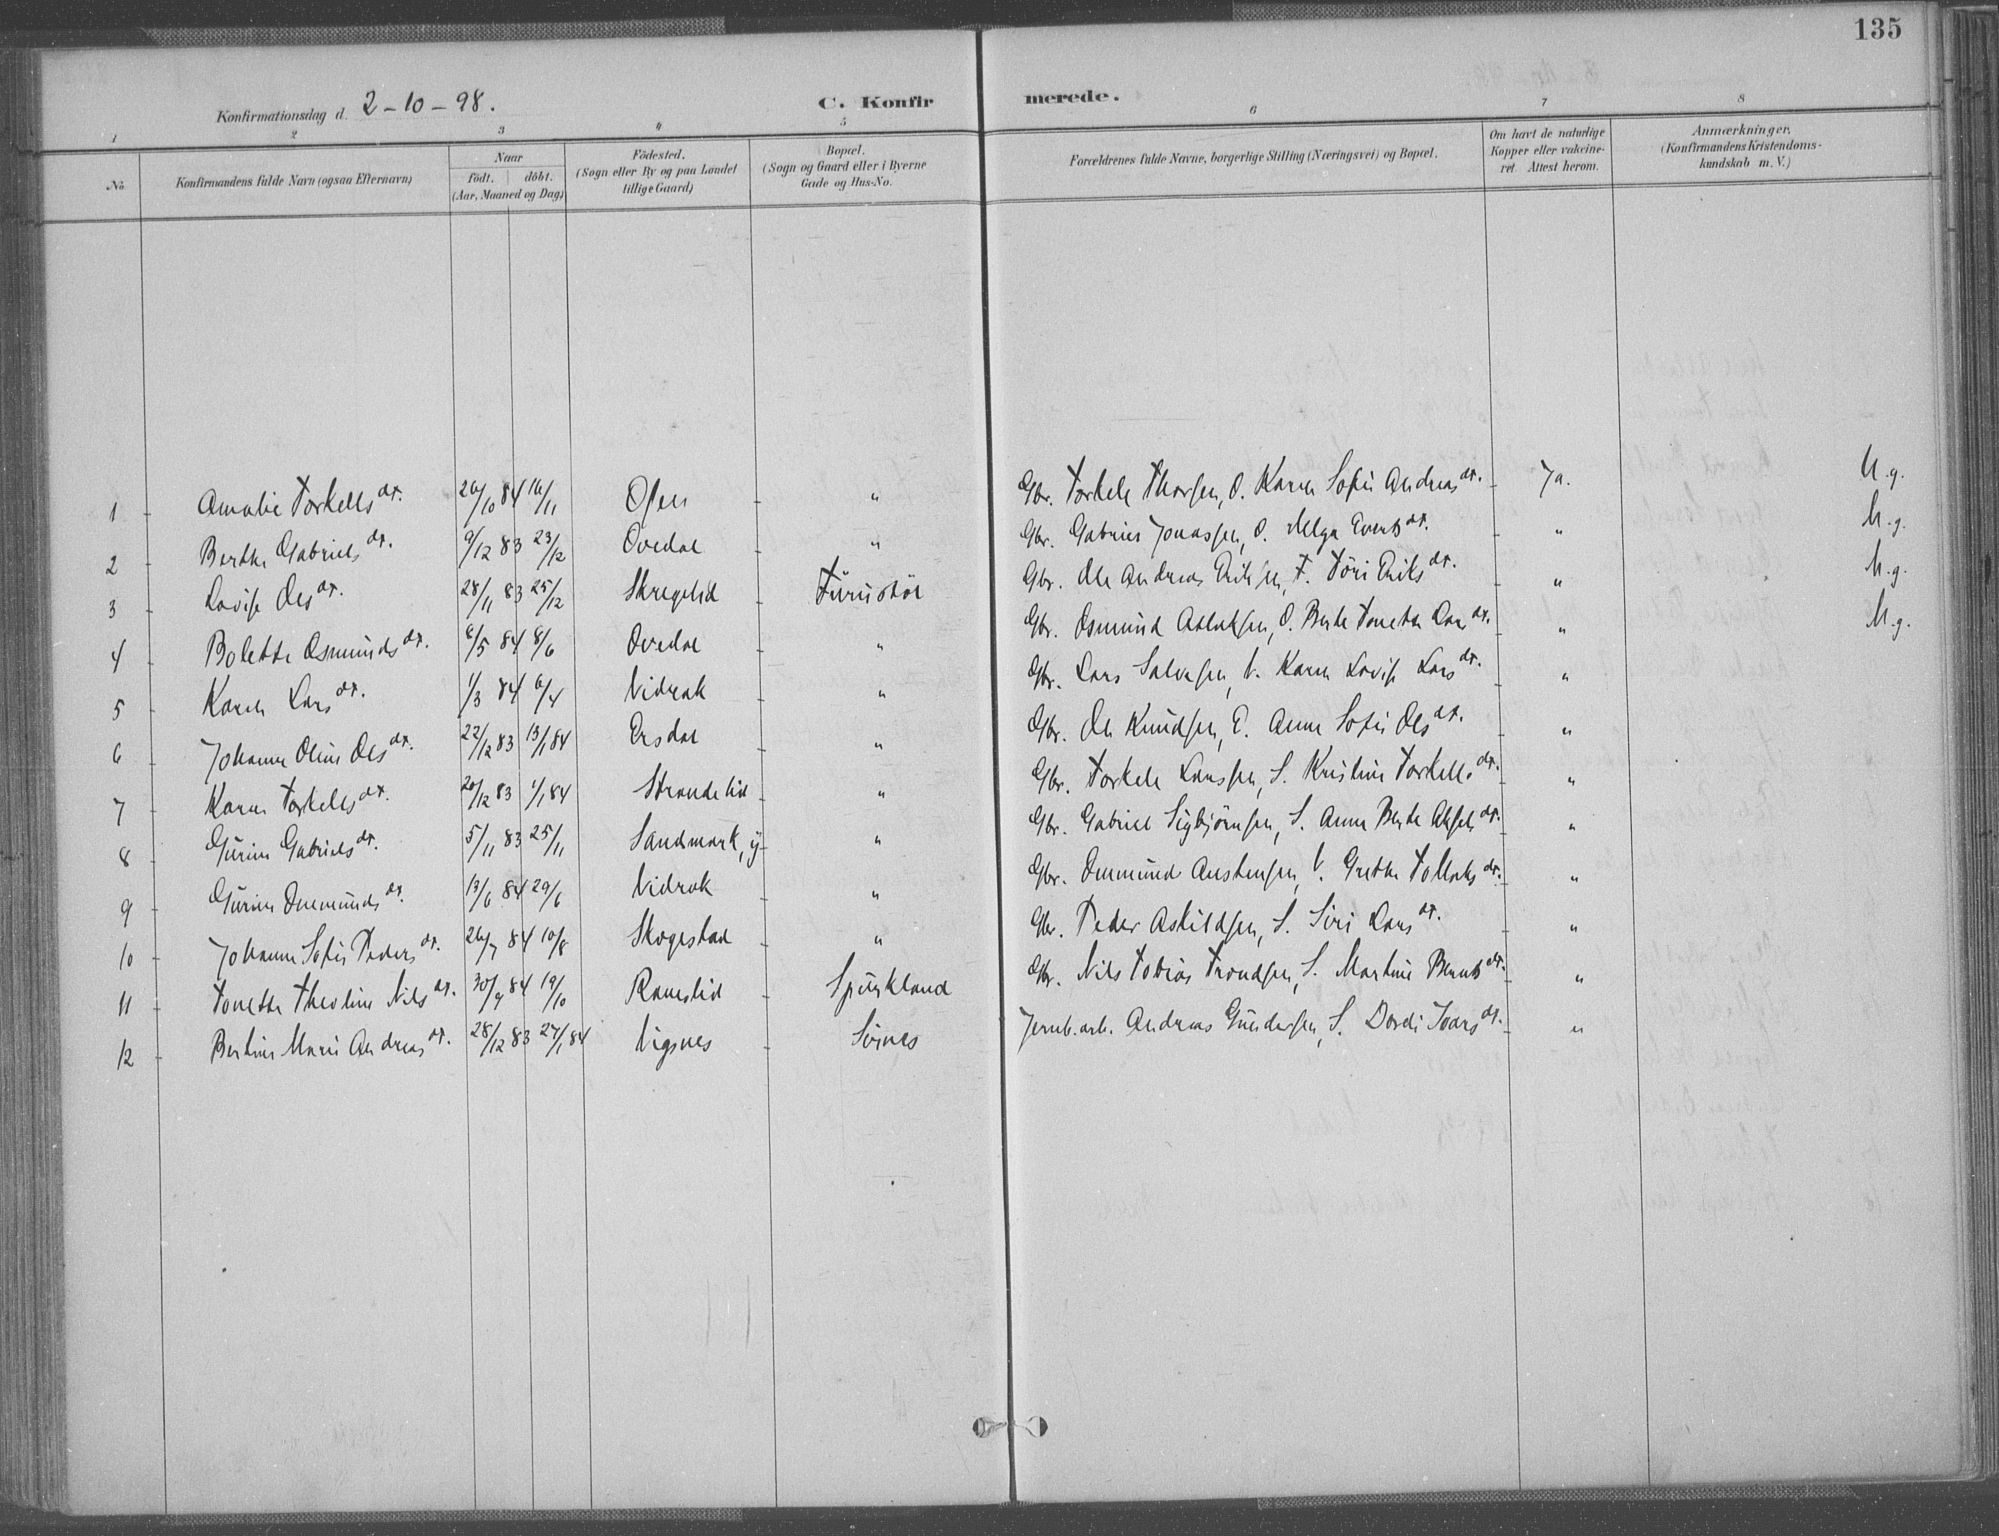 135
Konfirmationsdag d. 2-10-98. C. Konfirmerede.
1 2 3 4 5 6 7 8
No. Konfirmandens fulde Navn (ogsaa Efternavn) Naar Födt. döbt. (Aar, Maaned og Dag) Födested. (Sogn eller By og paa Landet tillige Gaard) Bopæl. (Sogn og Gaard eller i Byerne Gade og Hus-No. Forældrenes fulde Navne, borgerlige Stilling (Næringsvei) og Bopæl. Om havt de naturlige Kopper eller vakcineret Attest herom. Anmærkninger. (Konfirmandens Kristendomskundskab m. V.)
1 - Amalie Torkellsdt. 26/10 84 16/11 Ofen - " Gbr. Torkele Thorsen, O. Karen Sofie Andreasdt. - Ja. M.g.
2 - Berthe Gabrielsdt. 9/12 83 23/12 Ovedal - " Gbr. Gabriel Jonassen, O. Helga Evertsdt. " M.g.
3 - Lovise Olsdt. 28/11 83 25/12 Skregelid - Furustöl Gbr. Ole Andreas Eriksen, F. Töri Eriksdt. " M.g.
4 - Bolette Osmundsdt. 6/5 84 8/6 Ovedal - " Gbr. Osmund Aslaksen, O. Berte Tonette Larsdt. " M.g.
5 - Karen Larsdt. 1/3 84 6/4 Vidrak - " Gbr. Lars Salvesen, V. Karen Lovise Larsdt. - "
6 - Johanne Oline Olsdt. 22/12 83 13/1 84 Ersdal - " Gbr. Ole Knudsen, E. Anne Sofie Olsdt. - "
7 - Karen Torkellsdt. 20/12 83 1/1 84 Strandelid - " Gbr. Torkele Larssen, S. Kristine Torkellsdt. - "
8 - Gurine Gabrielsdt. 5/11 83 25/11 Sandmark, y - " Gbr. Gabriel Sigbjörnsen, S. Anne Berte Akselsdt. - "
9 - Gurine Ommundsdt. 13/6 84 29/6 Vidrak - " Gbr. Ommund Austensen, V. Grethe Tollaksdt. - "
10 - Johanne Sofie Pedersdt. 26/7 84 10/8 Skogestad - " Gbr. Peder Askildsen, S. Siri Larsdt. - "
11 - Tonette Theoline Nilsdt. 30/9 84 19/10 Raustid - Spurkland Gbr. Nils Tobias Trondsen, S. Martine Berntsdt. - "
12 - Bertine Marie Andreasdt. 28/12 83 27/1 84 Vigsnes - Sirnes Jernb. arb. Andreas Gundersen, S. Dordi Ivarsdt. - "